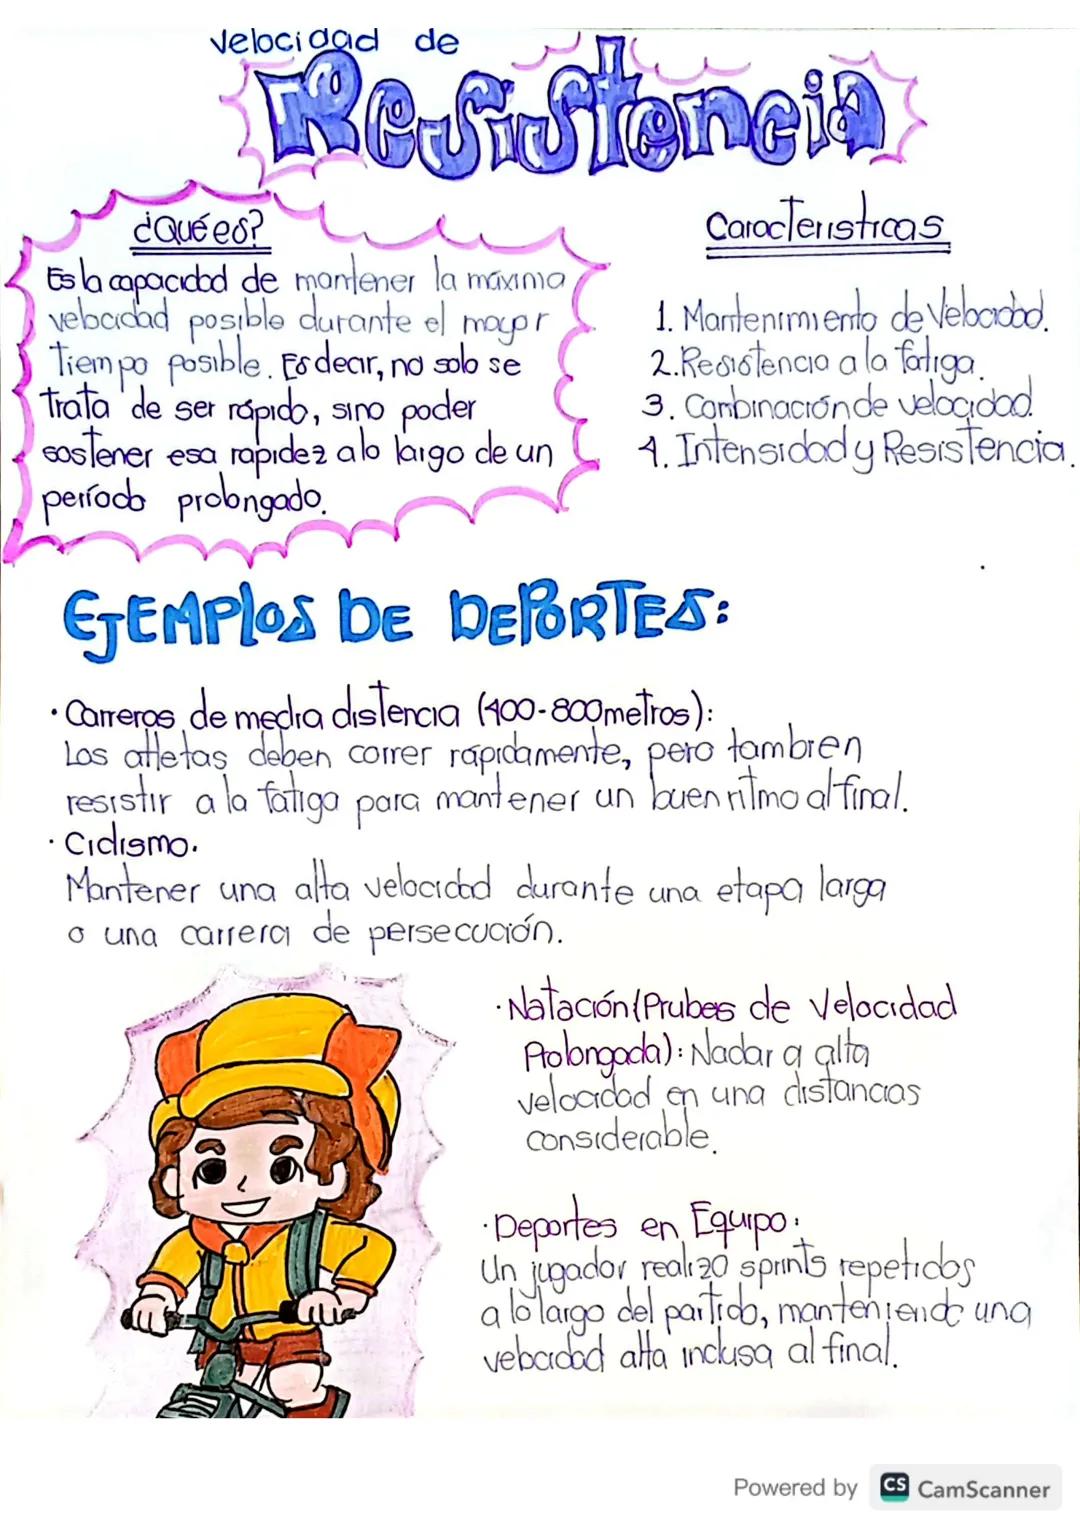 Velocidad de
Resistencia
¿Qué es?
Es la capacidad de mantener la máxima
velocidad posible durante el mayor
Tiempo posible. Es decir, no solo se
trata de ser rápido, sino poder
sostener esa rapidez a lo largo de un
período prolongado.
Características
1. Mantenimiento de Velocidad.
2. Resistencia a la fatiga.
3. Combinación de velocidad.
4. Intensidad y Resistencia.
EJEMPlOS DE DEPORTES:
· Carreras de media distencia (400-800 metros):
Los atletas deben correr rápidamente, pero tambien
resistir a la fatiga para mantener un buen ritmo al final.
· Ciclismo.
Mantener una alta velocidad durante una etapa larga
o una carrera de persecución.
· Natación (Prubes de Velocidad
Prolongada): Nadar a alta
velocidad en una distancias
considerable.
· Deportes en Equipo:
Un jugador realizo sprints repetidos
a lo largo del partido, manteniendo una
velocidad alta inclusa al final.
Powered by CS CamScanner